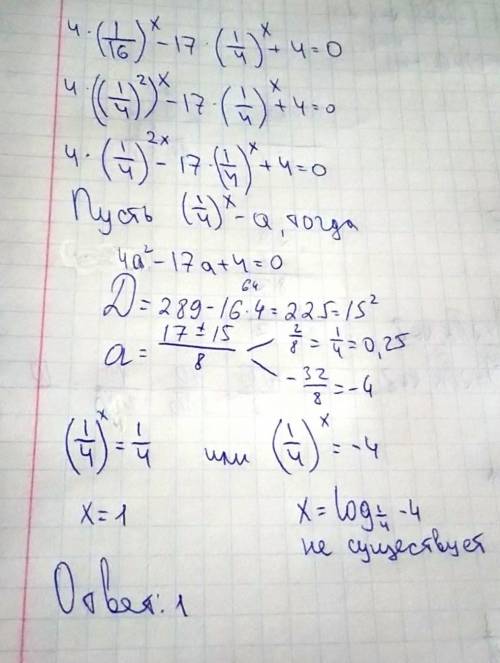 4·(1/16)^x - 17·(1/4)^x + 4 = 0
4·((1/4)^2)^x - 17·(1/4)^x + 4 = 0
4·(1/4)^2x - 17·(1/4)^x + 4 = 0
Пусть (1/4)^x - a, тогда
4a² - 17a + 4 = 0
64
D = 289 - 16·4 = 225 = 15²
a = (17 ± 15)/8 2/8 = 1/4 = 0,25
-32/8 = -4
(1/4)^x = 1/4 или (1/4)^x = -4
x = 1 x = log_1/4 -4
не существует
Ответ: 1